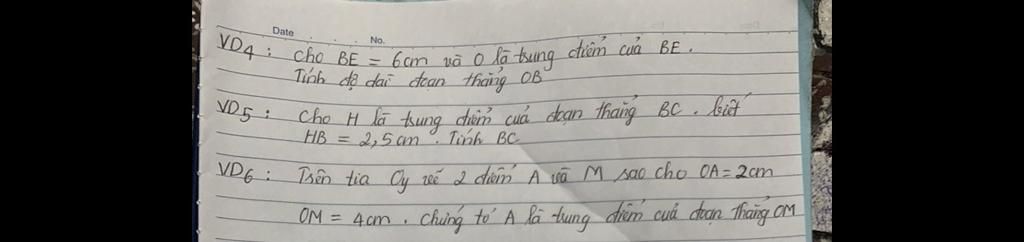 Date No.
VD4 : Cho BE = 6cm và O là trung điểm của BE.
Tính độ dài đoạn thẳng OB
VD5 : Cho H là trung điểm của đoạn thẳng BC. biết
HB = 2,5cm. Tính BC
VD6 : Trên tia Oy vẽ 2 điểm A và M sao cho OA = 2cm
OM = 4cm. Chứng tỏ A là trung điểm của đoạn thẳng OM